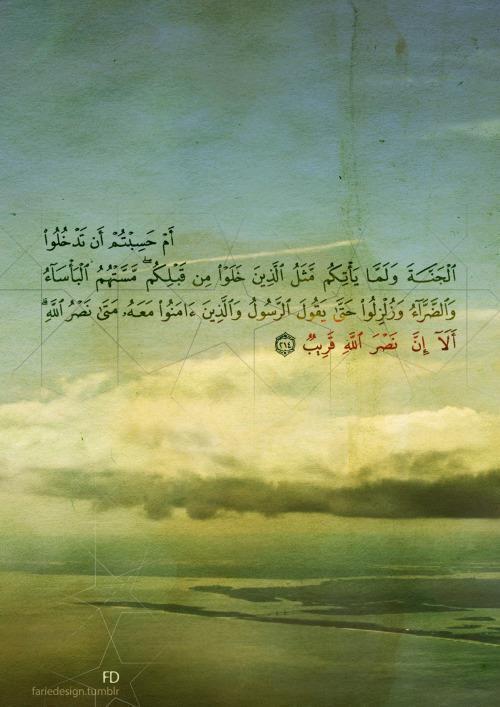 أَمْ حَسِبْتُمْ أَن تَدْخُلُوا۟
ٱلْجَنَّةَ وَلَمَّا يَأْتِكُم مَّثَلُ ٱلَّذِينَ خَلَوْا۟ مِن قَبْلِكُم ۖ مَّسَّتْهُمُ ٱلْبَأْسَآءُ
وَٱلضَّرَّآءُ وَزُلْزِلُوا۟ حَتَّىٰ يَقُولَ ٱلرَّسُولُ وَٱلَّذِينَ ءَامَنُوا۟ مَعَهُۥ مَتَىٰ نَصْرُ ٱللَّهِ ۗ
أَلَآ إِنَّ نَصْرَ ٱللَّهِ قَرِيبٌ ٢١٤
FD
fariedesign.tumblr